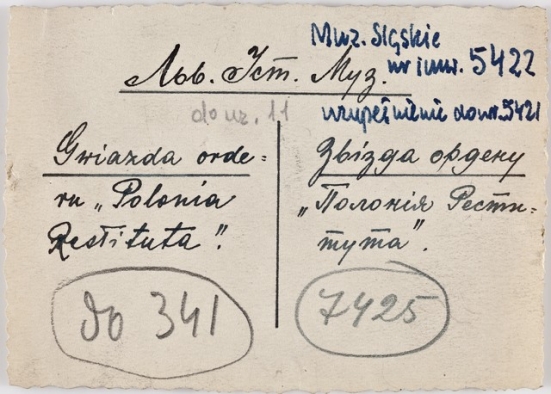 Muz. Śląskie
nr inw. 5422
Льв. Іст. Муз.
do nr. 11
uzupełnienie do nr. 5421
Gwiazda orde=
ru „Polonia
Restituta".
Звізда ордену
„Полонія Рести-
тута".
do 341
7425